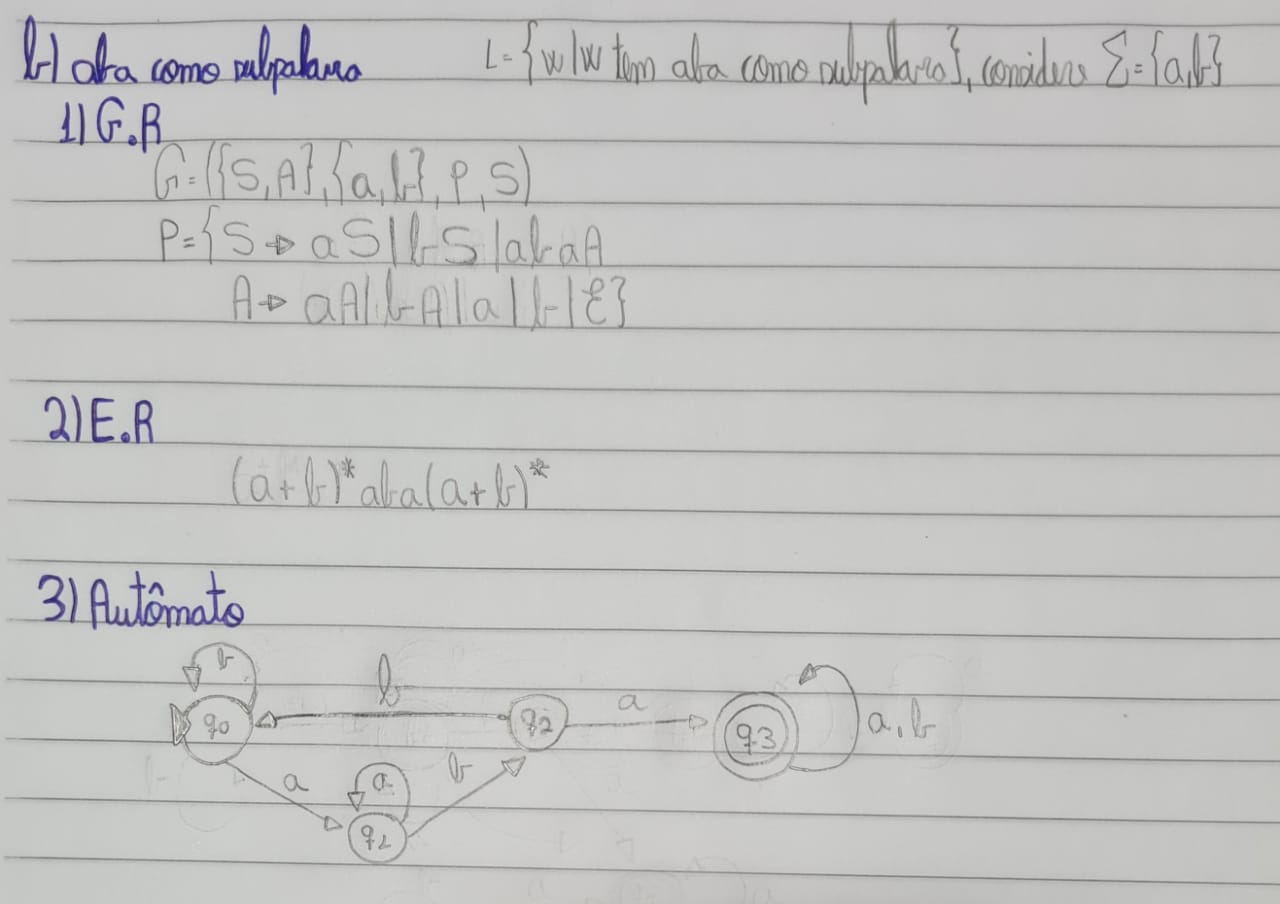 b) aba como subpalavra L={w|w tem aba como subpalavra}, considere Σ={a,b}
1) G.R
G=({S,A},{a,b},P,S)
P={S→aS|bS|abaA
A→aA|bA|a|b|ε}
2) E.R
(a+b)*aba(a+b)*
3) Autômato
b b a
q0 q2 q3 a,b
a a b
q1